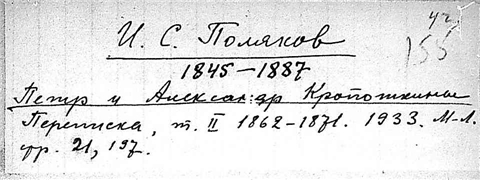 42
155
И. С. Поляков
1845–1887
Петр и Александр Кропоткины
Переписка, т. II 1862–1871. 1933. М-Л.
стр. 21, 197.